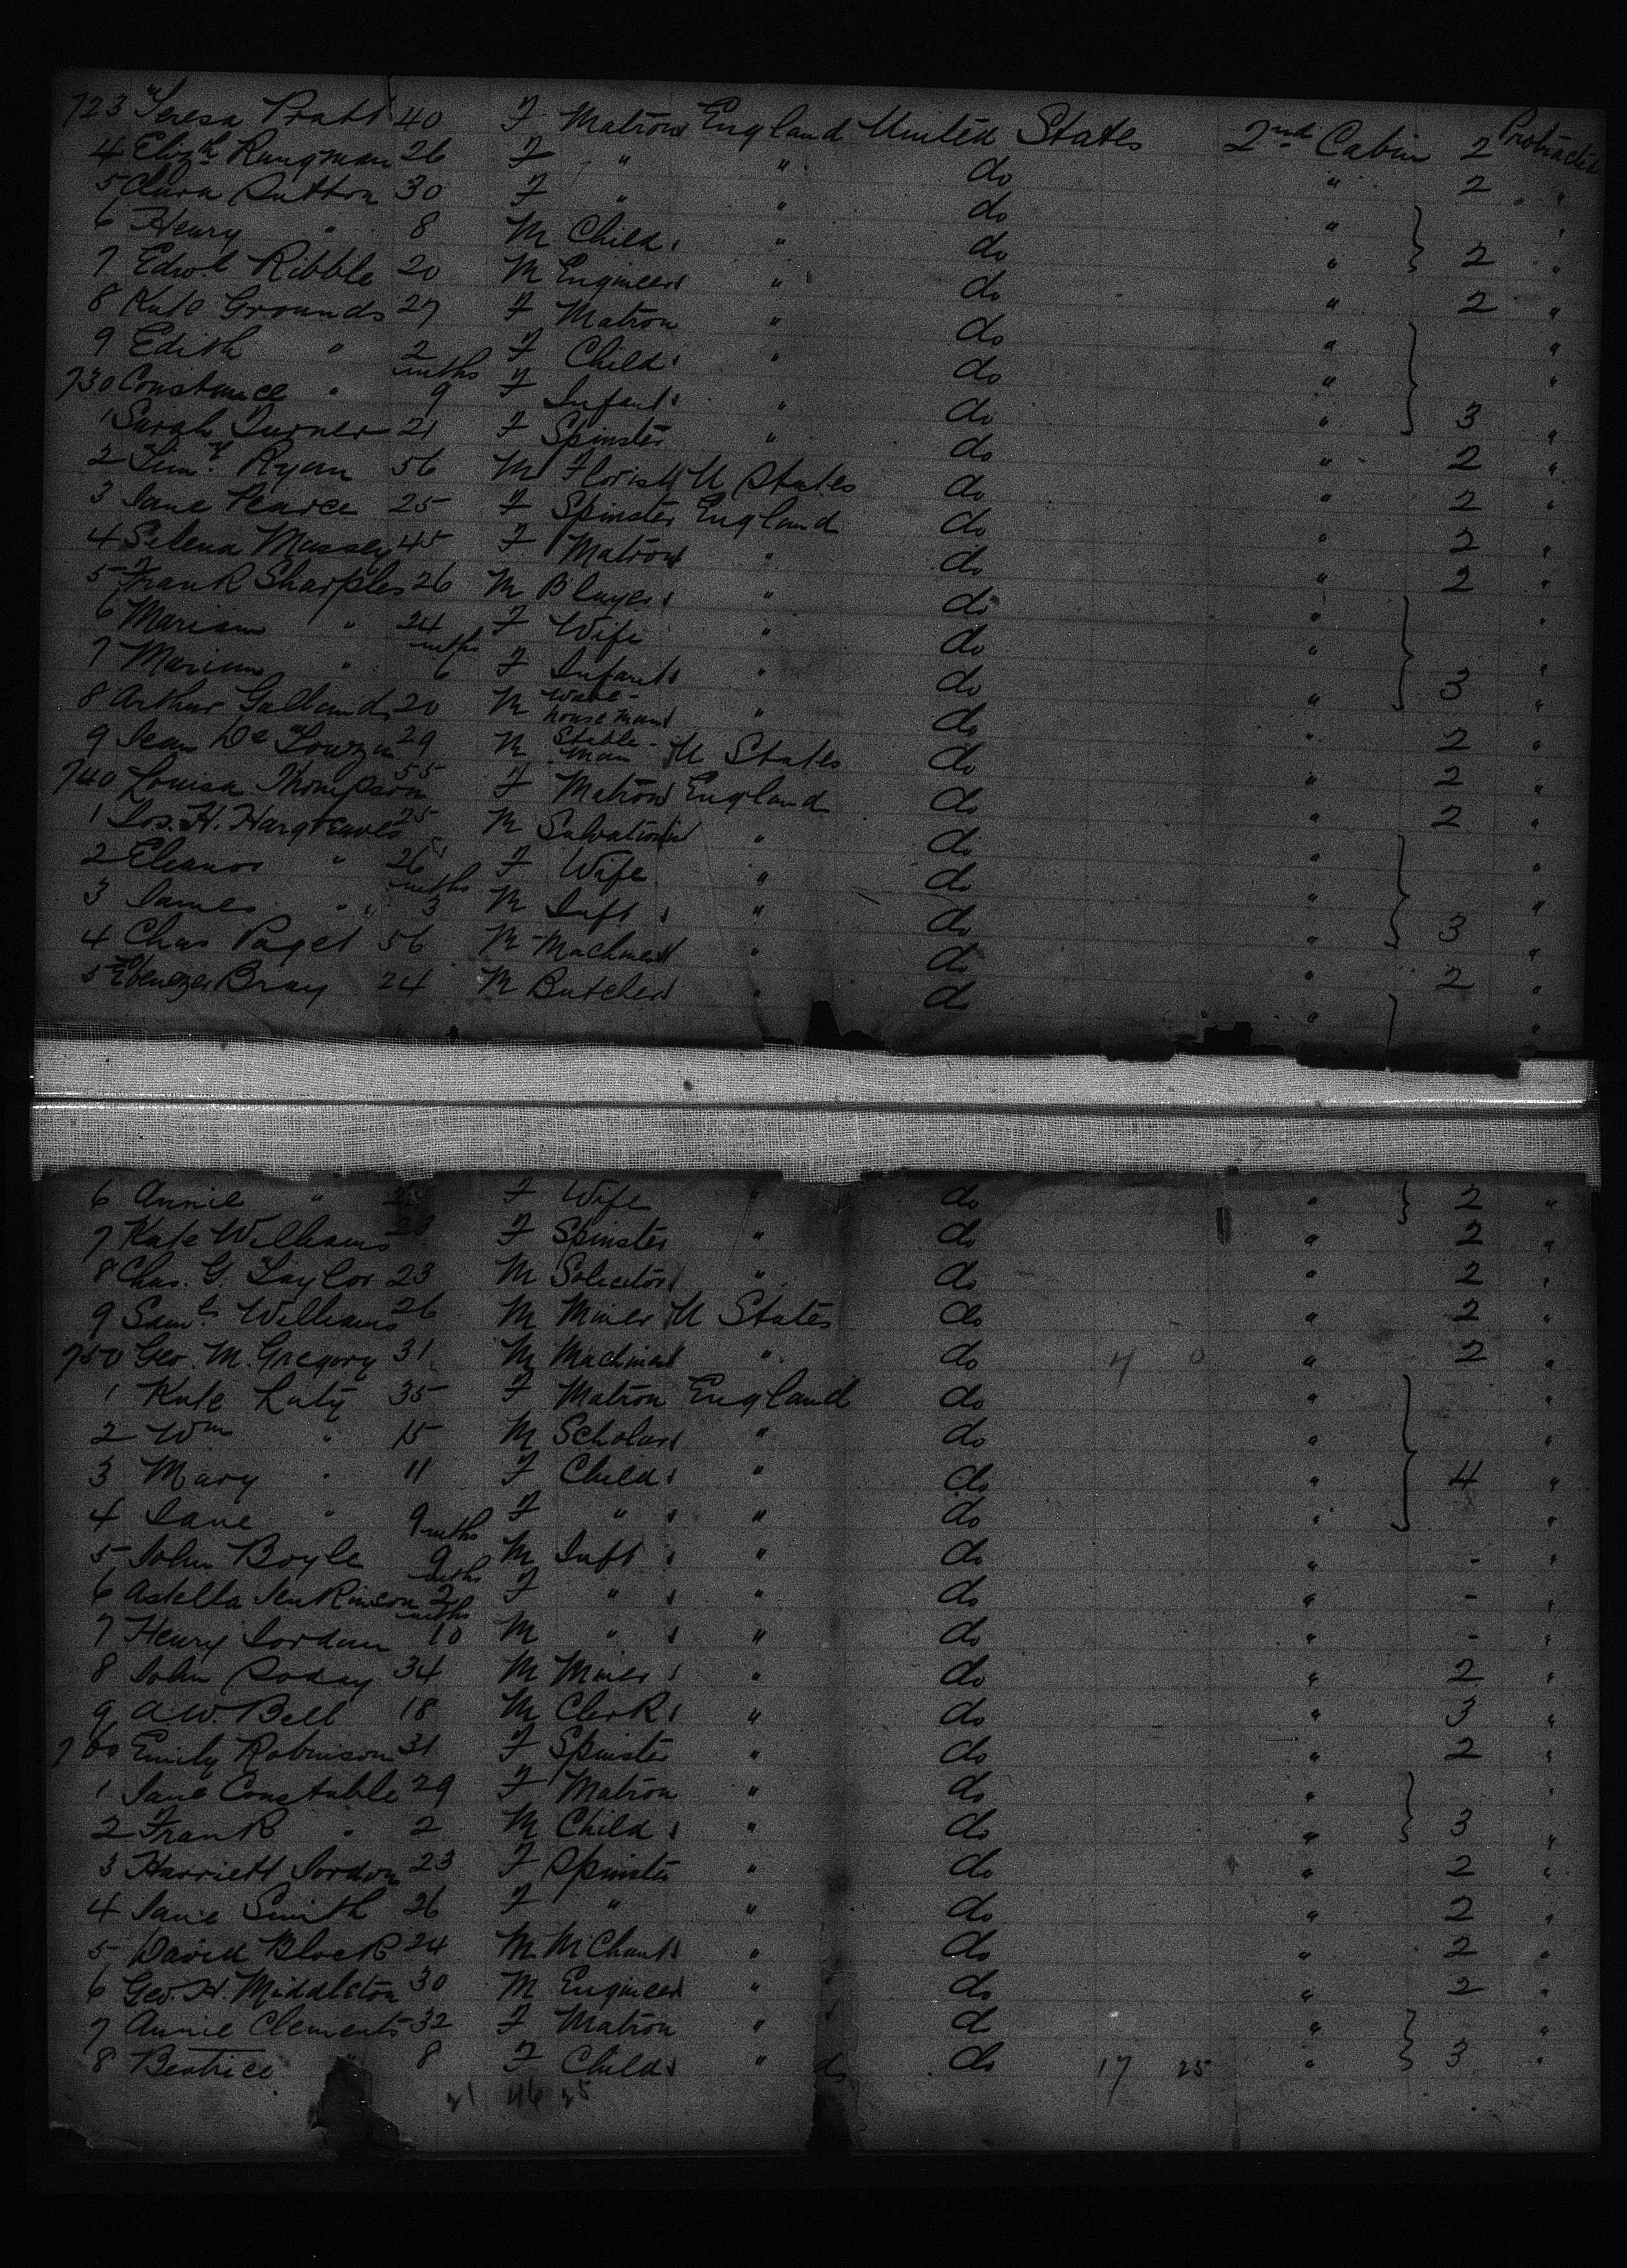 723 Teresa Pratt 40 F Matron England United States 2nd Cabin 2 Protracted
4 Elizth Rungman 26 F " " do " 2 "
5 Clara Sutton 30 F " " do " "
6 Henry " 8 M Child " do " 2 "
7 Edwd Ribble 20 M Engineer " do " 2 "
8 Kate Grounds 27 F Matron " do " "
9 Edith " 2 F Child " do " "
730 Constance " mths 9 F Infant " do " 3 "
1 Sarah Turner 21 F Spinster " do " 2 "
2 Timy Ryan 56 M Florist U States do " 2 "
3 Jane Pearce 25 F Spinster England do " 2 "
4 Selena Massey 45 F Matron " do " 2 "
5 Frank Sharples 26 M " do " "
6 Mariam " 24 F Wife " do " "
7 Mariam " mths 6 F Infant " do " 3 "
8 Arthur Galland 20 M Ware-houseman " do " 2 "
9 Jean De 29 M Stable-man U States do " 2 "
740 Louisa Thompson 55 F Matron England do " 2 "
1 Jos. H. Hargreaves 25 M Salvationist " do " "
2 Eleanor " 26 F Wife " do " "
3 James " mths 3 M Inft " do " 3 "
4 Chas Paget 56 M Machinist " do " 2 "
5 Ebenezer Bray 24 M Butcher " do " "
6 Annie " F Wife " do " 2 "
7 Kate Williams 23 F Spinster " do " 2 "
8 Chas. G. Taylor 23 M Solicitor " do " 2 "
9 Saml Williams 26 M Miner U States do " 2 "
750 Geo. M. Gregory 31 M Machinist " do 4 0 " 2 "
1 Kate Luty 35 F Matron England do " "
2 Wm " 15 M Scholar " do " "
3 Mary " 11 F Child " do " 4 "
4 Jane " 9 F " " do " "
5 John Boyle mths 9 M Inft " do " - "
6 Astella Jenkinson mths 2 F " " do " - "
7 Henry Jordan mths 10 M " " do " - "
8 John Soday 34 M Miner " do " 2 "
9 A.W. Bell 18 M Clerk " do " 3 "
760 Emily Robinson 31 F Spinster " do " 2 "
1 Jane Constable 29 F Matron " do " "
2 Frank " 2 M Child " do " 3 "
3 Harriett Jordon 23 F Spinster " do " 2 "
4 Janie Smith 26 F " " do " 2 "
5 David Block 24 M MChant " do " 2 "
6 Geo. H. Middleton 30 M Engineer " do " 2 "
7 Annie Clements 32 F Matron " d " "
8 Beatrice " 8 F Child " do do 17 25 " 3 "
21 46 25